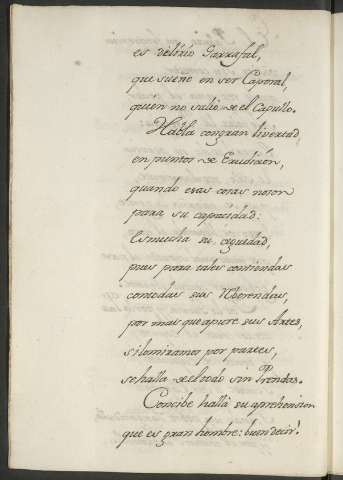 es delirio Garrafal,
que sueñe en ser Caporal,
quien no salio de el Capullo.
Habla con gran livertad
en puntos de Erudizon,
quando esas cosas noson
para su capacidad:
Es mucha su ceguedad,
pues para tales contiendas
con todas sus
por mas que apure sus Artes,
si lo miramos por partes,
se halla de el todo sin Prendas.
Concibe halla su aprehension
que es gran hombre: buen decir!